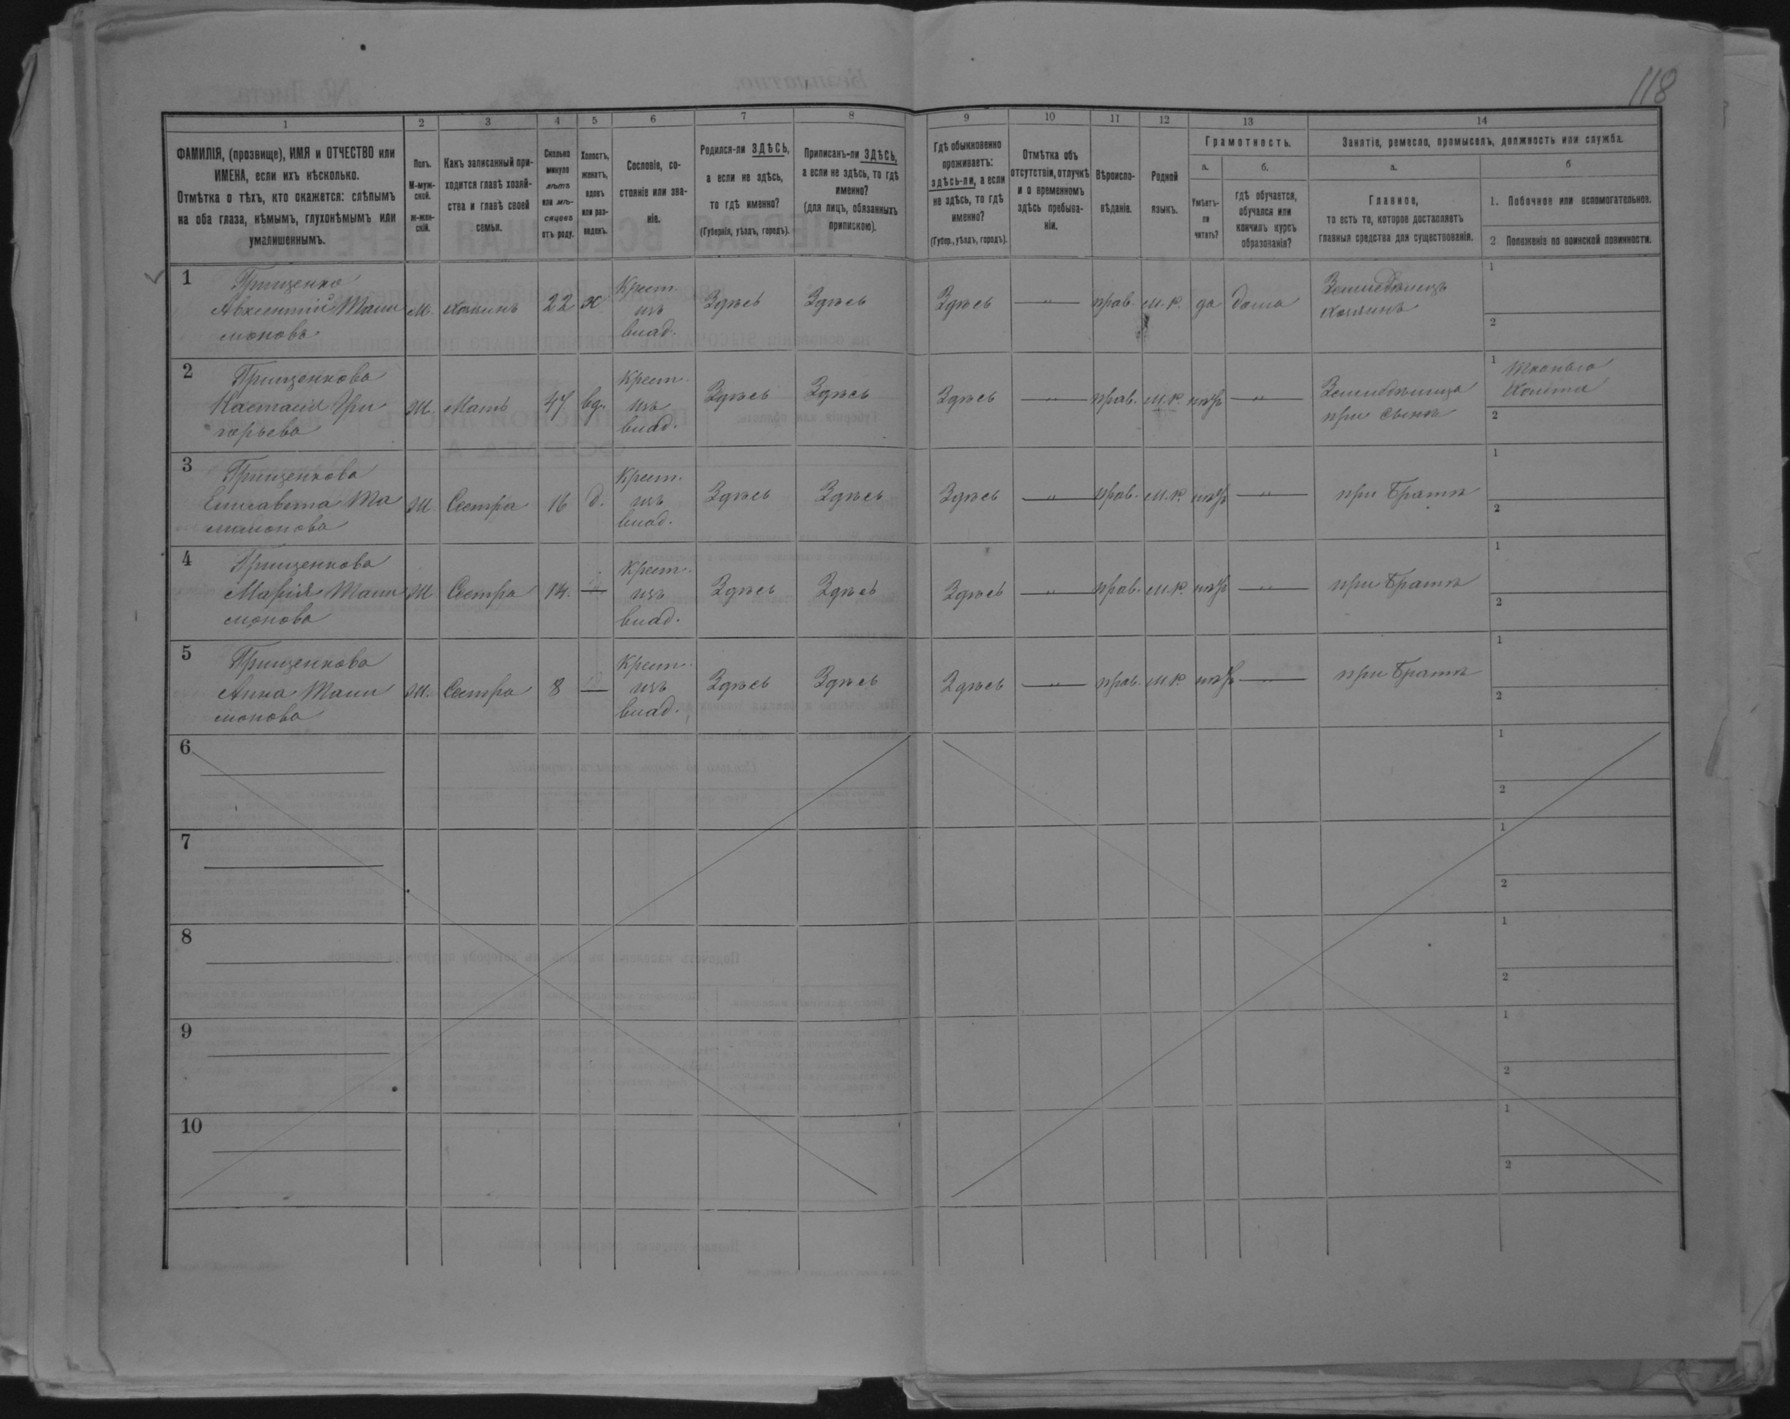 118
1 2 3 4 5 6 7 8 9 10 11 12 13 14
ФАМИЛІЯ, (прозвище), ИМЯ и ОТЧЕСТВО или
ИМЕНА, если ихъ нѣсколько.
Отмѣтка о тѣхъ, кто окажется: слѣпымъ
на оба глаза, нѣмымъ, глухонѣмымъ или
умалишеннымъ.
Полъ.
М-муж-
ской.
ж-жен-
скій.
Какъ записанный при-
ходится главѣ хозяй-
ства и главѣ своей
семьи.
Сколько
минуло
лѣтъ
или мѣ-
сяцевъ
отъ роду.
Холостъ,
женатъ,
вдовъ
или раз-
веденъ.
Сословіе, со-
стояніе или зва-
ніе.
Родился-ли ЗДѢСЬ,
а если не здѣсь,
то гдѣ именно?
(Губернія, уѣздъ, городъ).
Приписанъ-ли ЗДѢСЬ,
а если не здѣсь, то гдѣ
именно?
(для лицъ, обязанныхъ
припискою).
Гдѣ обыкновенно
проживаетъ:
здѣсь-ли, а если
не здѣсь, то гдѣ
именно?
(Губер., уѣздъ, городъ).
Отмѣтка объ
отсутствіи, отлучкѣ
и о временномъ
здѣсь пребыва-
ніи.
Вѣроиспо-
вѣданіе.
Родной
языкъ.
Грамотность.
а.
Умѣетъ-
ли
читать?
б.
гдѣ обучается,
обучался или
кончилъ курсъ
образованія?
Занятіе, ремесло, промыселъ, должность или служба.
а.
Главное,
то есть то, которое доставляетъ
главныя средства для существованія.
б
1. Побочное или вспомогательное.
2 Положеніе по воинской повинности.
1
Грищенко
Авксентій Мами
моновъ
М. хозяинъ 22 ж Крест.
изъ
влад.
Здѣсь Здѣсь Здѣсь — " — прав. м.р. да дома
Земледѣлецъ
хозяинъ
1
2
2
Грищенкова
Настасія Гри
горьева
Ж. Мать 47 вд. Крест.
изъ
влад.
Здѣсь Здѣсь Здѣсь — " — прав. м.р. нѣтъ — " —
Земледѣлица
при сынѣ
1
2
3
Грищенкова
Елисавета Ма
мамонова
Ж Сестра 16 д. Крест.
изъ
влад.
Здѣсь Здѣсь Здѣсь — " — прав. м.р. нѣтъ — " — при братѣ
1
2
4
Грищенкова
Марія Мами
монова
Ж Сестра 14. — Крест.
изъ
влад.
Здѣсь Здѣсь Здѣсь — " — прав. м.р. нѣтъ — " — при братѣ
1
2
5
Грищенкова
Анна Мами
монова
Ж. Сестра 8 — Крест.
изъ
влад.
Здѣсь Здѣсь Здѣсь — " — прав. м.р. нѣтъ — " — при братѣ
1
2
6
1
2
7
1
2
8
1
2
9
1
2
10
1
2